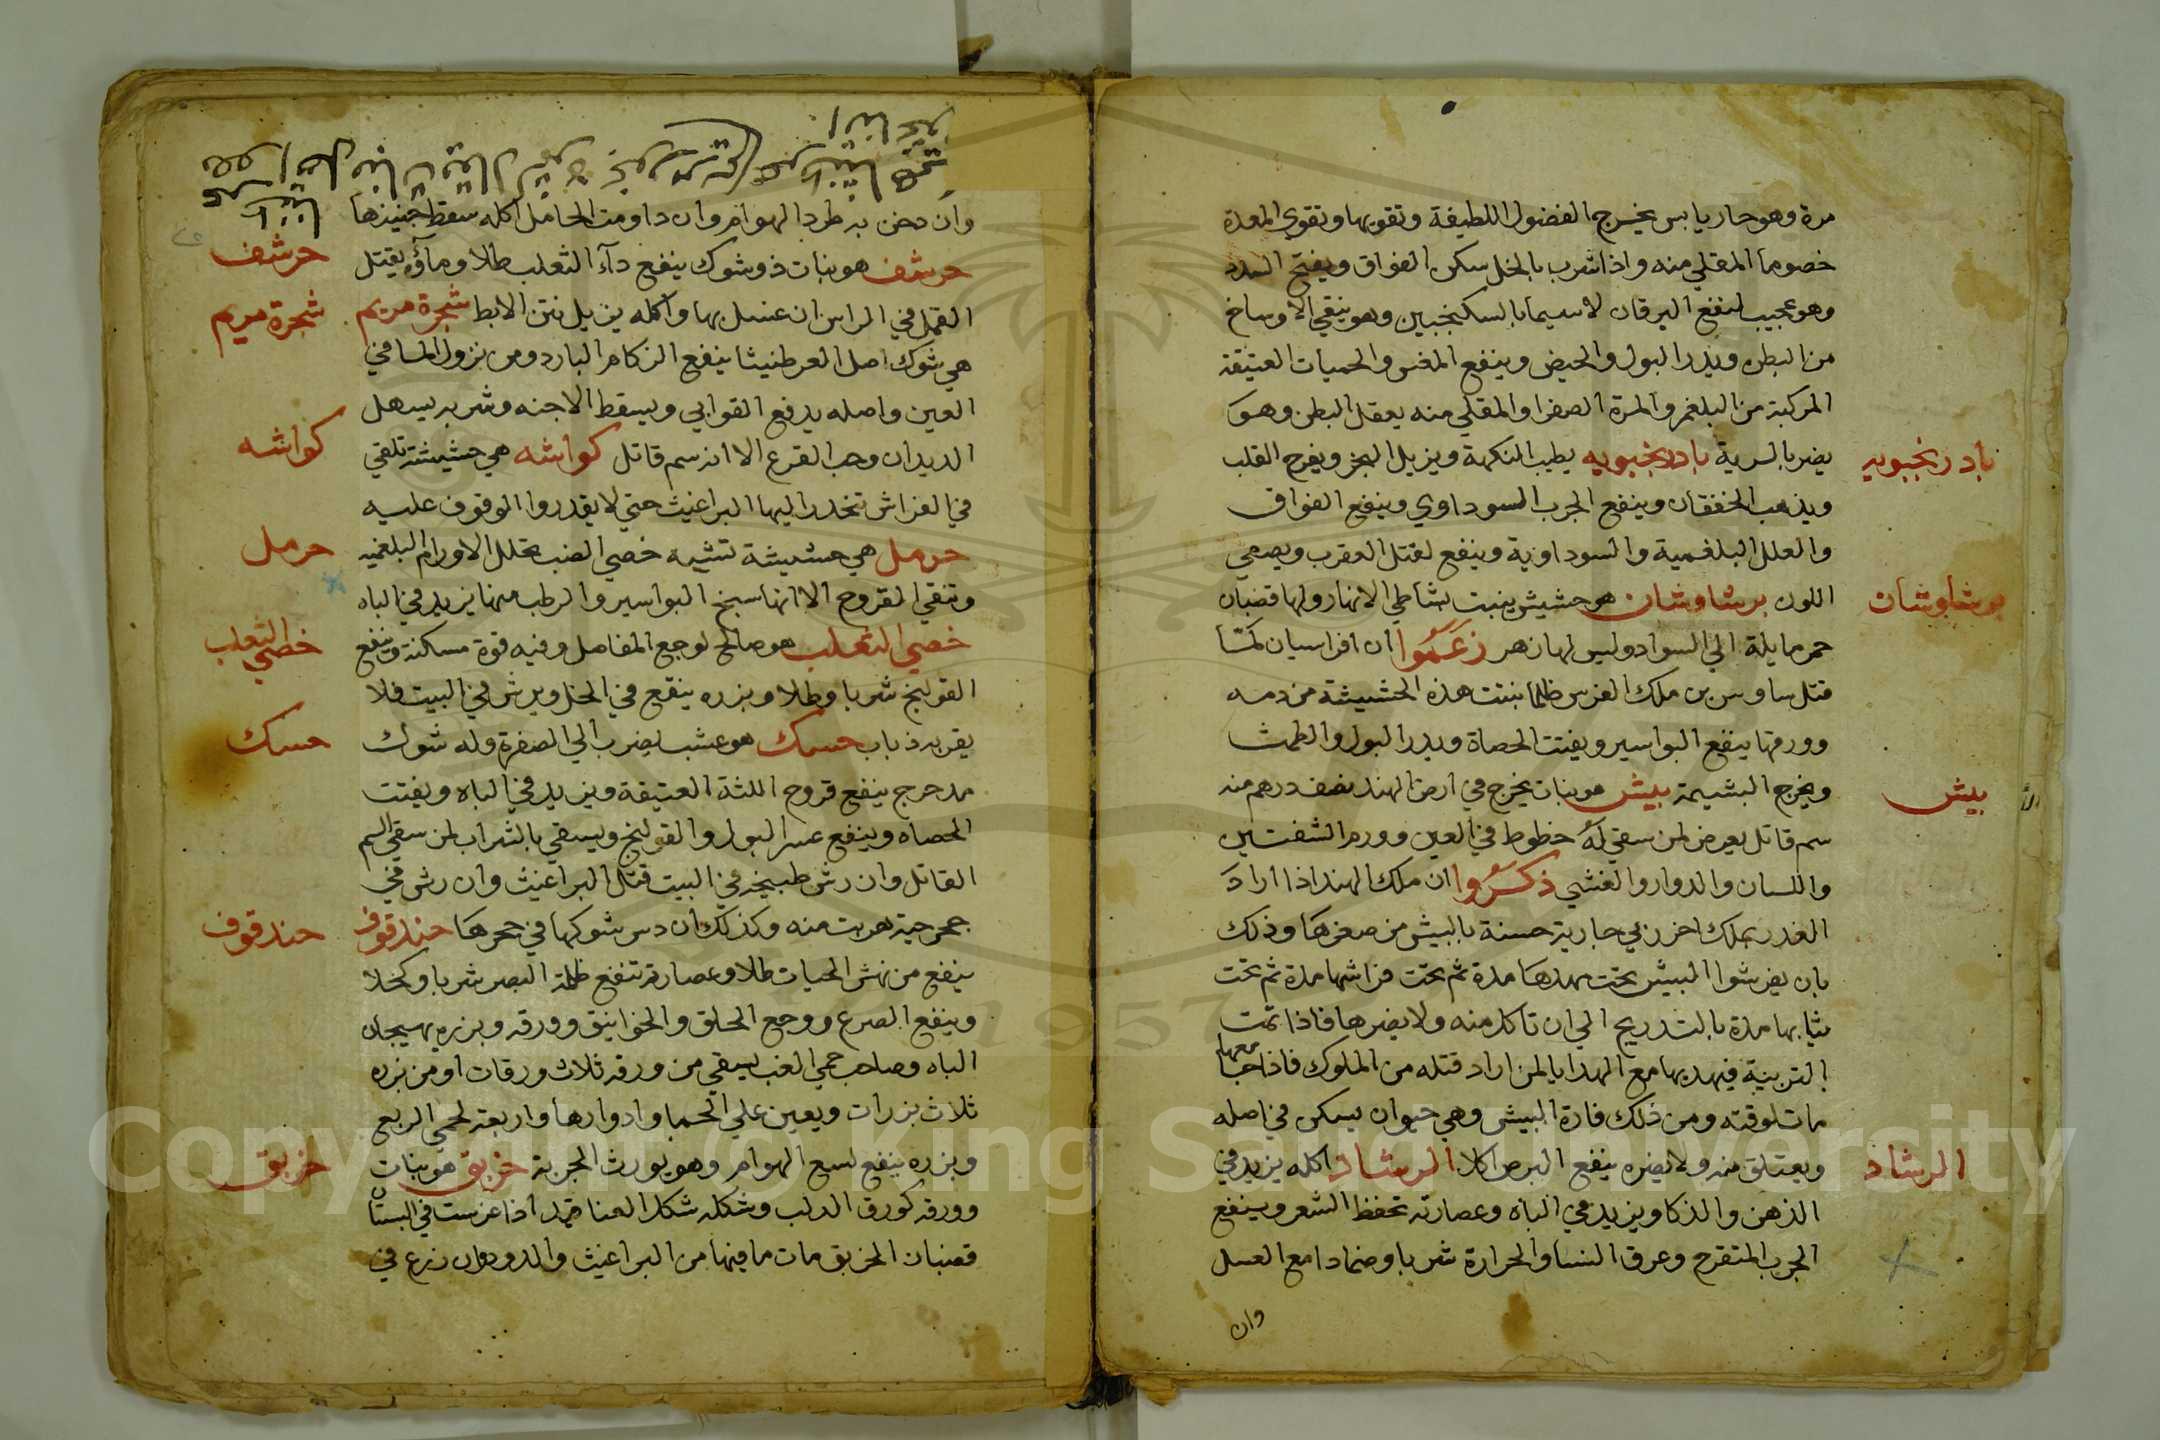 مرة وهو حار يابس يخرج الفضول اللطيفة وتقويها وتقوي المعدة
خصوصا المقلي منه واذا شرب بالخل سكن الفواق ويفتح السدد
وهو عجيب لنفع اليرقان لاسيما بالسكنجبين وهو ينقي الاوساخ
من البطن ويدر البول والحيض وينفع المغس والحميات العتيقة
المركبة من البلغم والمرة الصفرا والمقلي منه يعقل البطن وهو
يضر بالرية بادرنجبويه يطيب النكهة ويزيل البخر ويفرح القلب
بادرنجبويه
ويذهب الخفقان وينفع الجرب السوداوي وينفع الفواق
والعلل البلغمية والسوداوية وينفع لقتل العقرب ويصفي
اللون برشاوشان هو حشيش ينبت بشاطي الانهار ولها قضبان
برشاوشان
حمر مايلة الي السواد وليس لها زهر زعموا ان افراسيان لما
قتل ساوس بن ملك الفرس ظلما نبتت هذه الحشيشة من دمه
وورقها ينفع البواسير ويفتت الحصاة ويدر البول والطمث
ويخرج البشيمة بيش هو نبات يخرج في ارض الهند نصف درهم منه
بيش
سم قاتل يعرض لمن سقي له خطوط في العين وورم الشفتين
واللسان والدوار والغشي ذكروا ان ملك الهند اذا اراد
الغدر بملك اخر ربي جارية حسنة بالبيش من صغرها وذلك
بان يفرشوا البيش تحت مهدها مدة ثم تحت فراشها مدة ثم تحت
ثيابها مدة بالتدريج الي ان تاكل منه ولا يضرها فاذا تمت
التربية فيهديها مع الهدايا لمن اراد قتله من الملوك فاذا جامعها
مات لوقته ومن ذلك فارة البيش وهي حيوان يسكن في اصله
ويعتلق منه ولا يضره ينفع البرص اكلا الرشاد اكله يزيد في
الرشاد
الذهن والذكا ويزيد في الباه وعصارته تحفظ الشعر وينفع
الجرب المتقرح وعرق النسا والحرارة شربا وضمادا مع العسل
وان
وان دخن به طرد الهوام وان داومت الحامل اكله سقط جنينها
حرشف هو نبات ذو شوك ينفع دآء الثعلب طلا وماؤه يقتل
حرشف
القمل في الراس ان غسل بها واكله يزيل نتن الابط شجرة مريم
شجرة مريم
هي شوك اصل العرطنيثا ينفع الزكام البارد ومن نزول الما في
العين واصله يدفع القوابي ويسقط الاجنه وشربه يسهل
الديدان وحب القرع الا انه سم قاتل كواشه هي حشيشة تلقي
كواشه
في الفراش تخدر اليها البراغيث حتي لا يقدروا الوقوف عليه
حرمل هي حشيشة تشبه خصي الضب تحلل الاورام البلغميه
حرمل
وتنقي القروح الا انها البواسير والرطب منها يزيد في الباه
خصي الثعلب هو صالح لوجع المفاصل وفيه قوة مسكنة وينفع
خصي الثعلب
القولنج شربا وطلا وبزره ينقع في الخل ويرش في البيت فلا
يقربه ذباب حسك هو عشب يضرب الي الصفرة وله شوك
حسك
مدحرج ينفع قروح اللثة العتيقة ويزيد في الباه ويفتت
الحصاه وينفع عسر البول والقولنج ويسقي بالشراب لمن سقي السم
القاتل وان رش طبيخه في البيت قتل البراغيث وان رش في
جحر حية هربت منه وكذلك ان دس شوكها في جحرها حندقوف
حندقوف
ينفع من نهش الحيات طلا وعصارته تنفع ظلمة البصر شربا وكحلا
وينفع الصرع ووجع الحلق والخوانيق وورقه وبزره يهيجان
الباه وصاحب حمي الغب يسقي من ورقه ثلاث ورقات او من بزره
ثلاث بزرات ويعين علي الحما وادوارها واربعة لحمي الربع
وبزره ينفع لسع الهوام وهو يورث الجربة خربق هو نبات
خربق
وورقه كورق الدلب وشكله شكل اذا غرست في البستا
قضبان الخربق مات ما فيها من البراغيث والدود وان زرع في
Copyright © King Saud University
1957